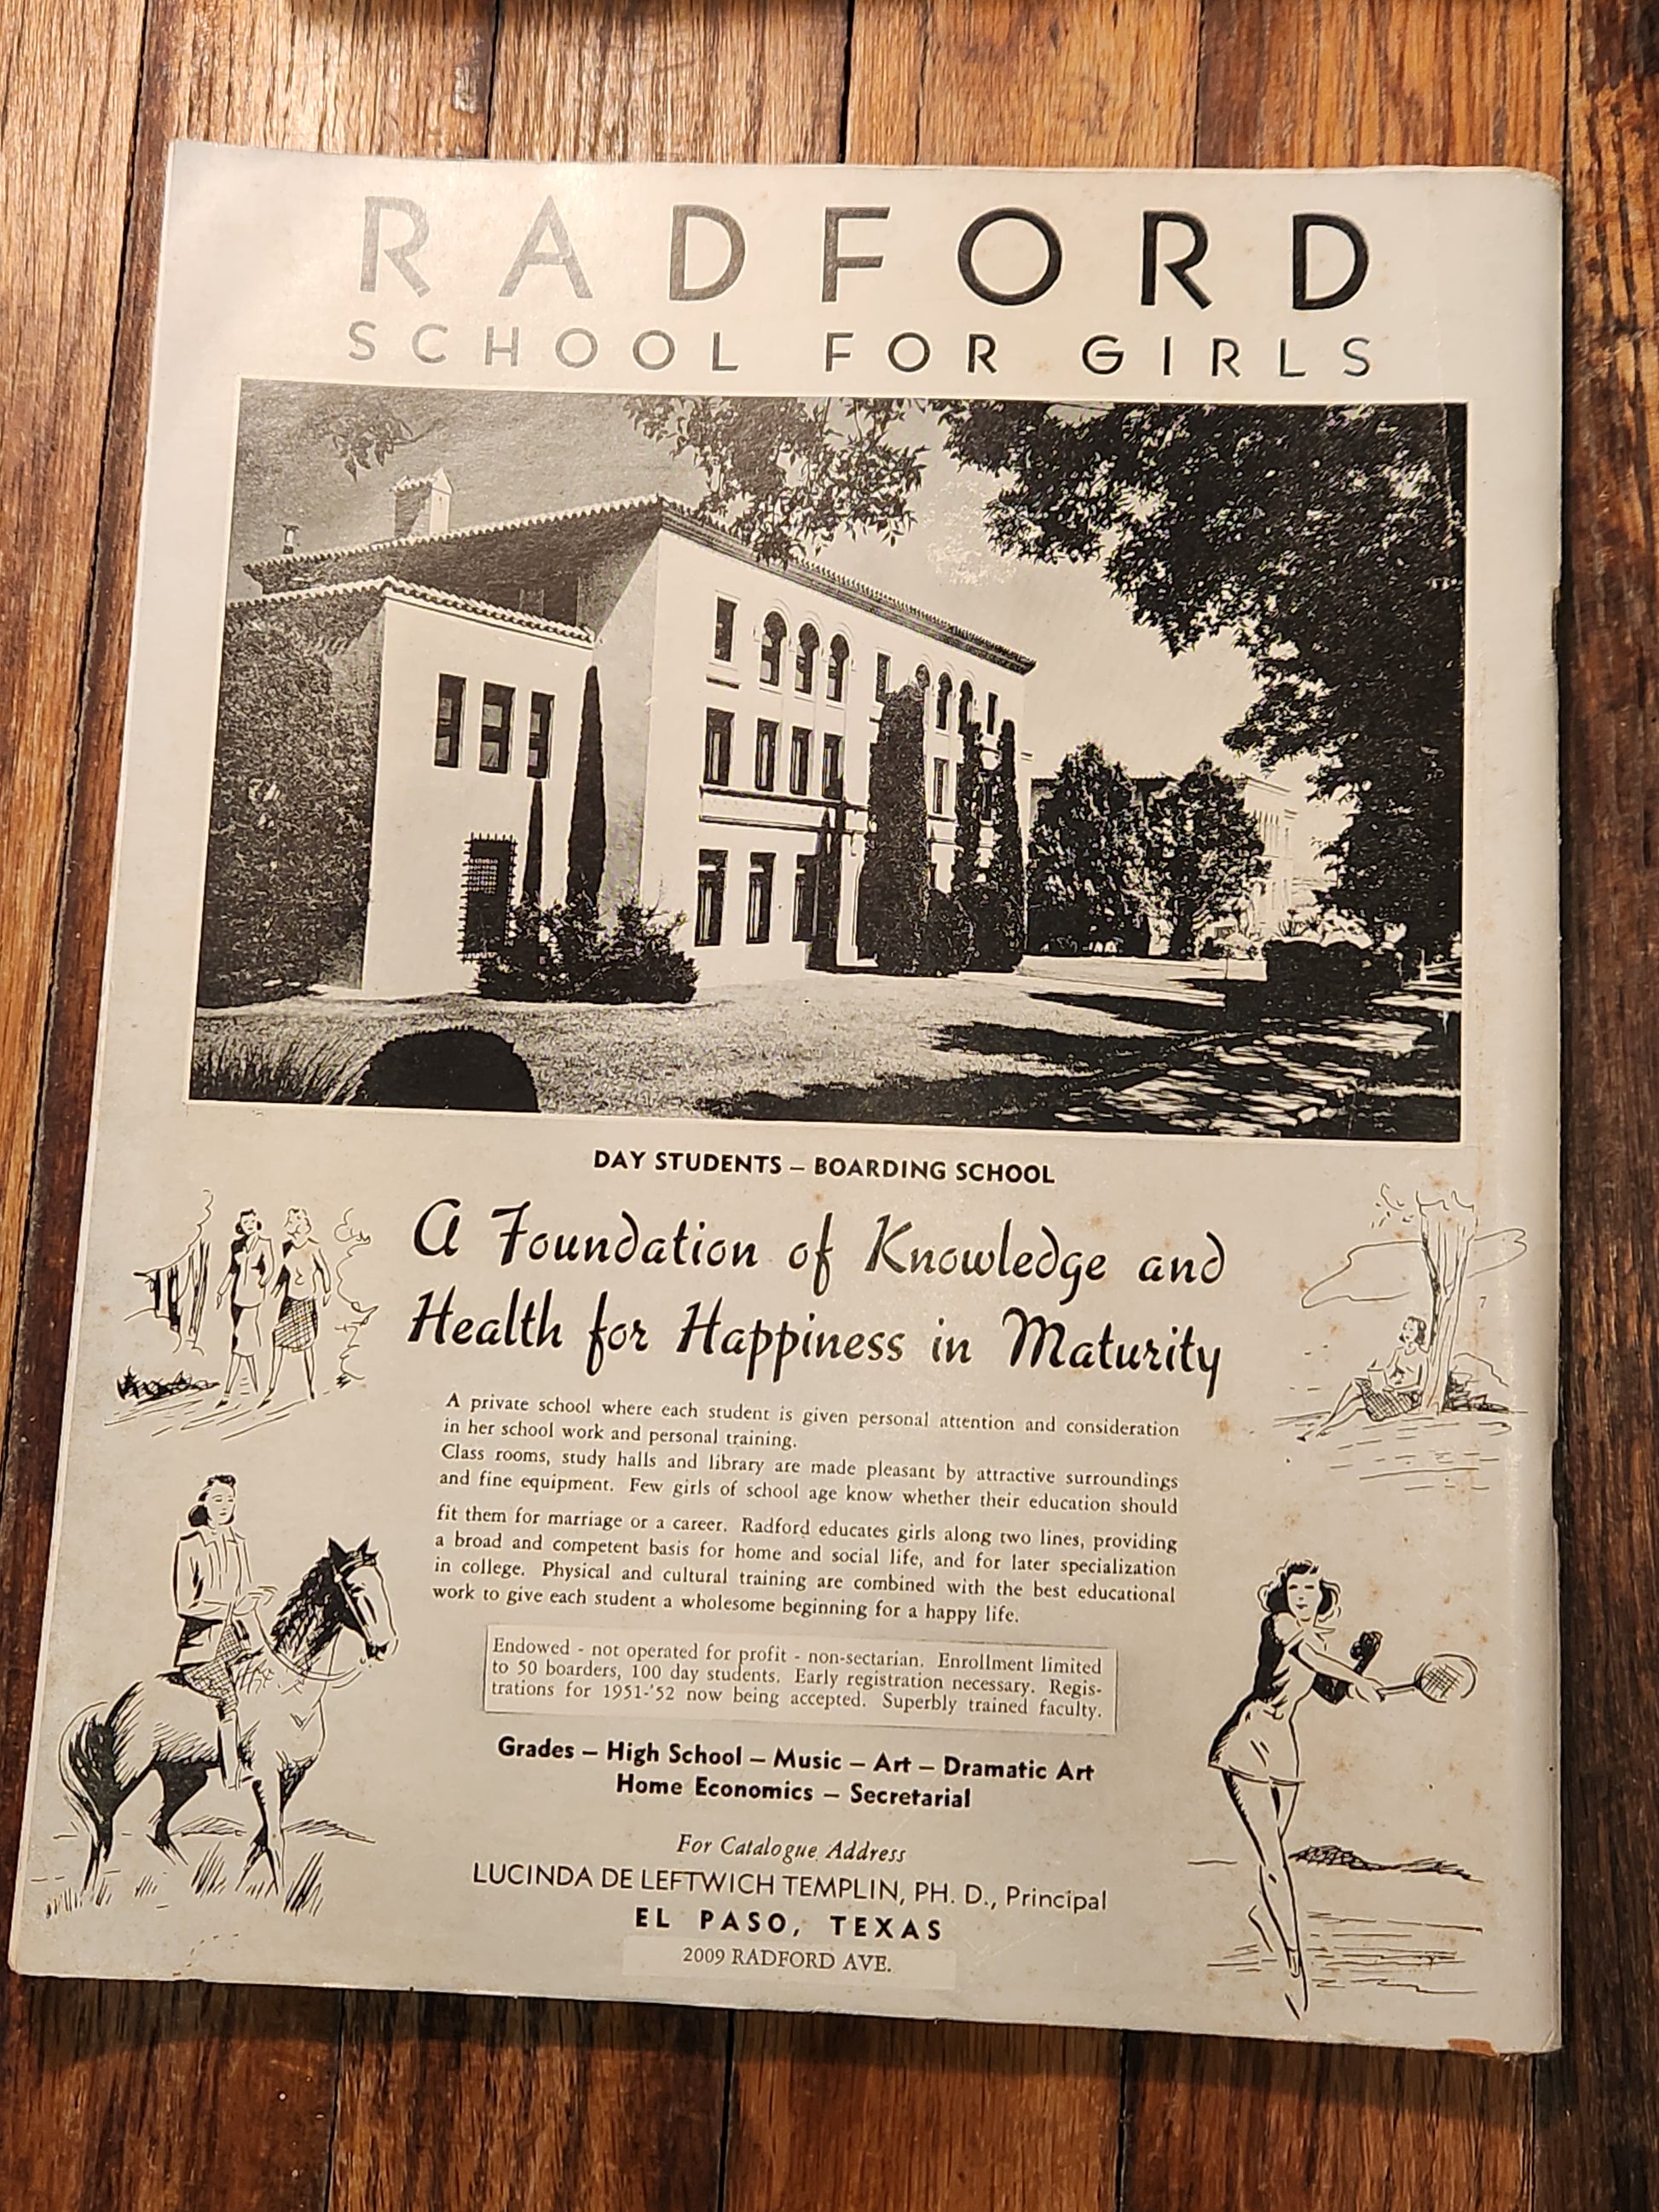 RADFORD
SCHOOL FOR GIRLS
DAY STUDENTS – BOARDING SCHOOL
A Foundation of Knowledge and
Health for Happiness in Maturity
A private school where each student is given personal attention and consideration
in her school work and personal training.
Class rooms, study halls and library are made pleasant by attractive surroundings
and fine equipment. Few girls of school age know whether their education should
fit them for marriage or a career. Radford educates girls along two lines, providing
a broad and competent basis for home and social life, and for later specialization
in college. Physical and cultural training are combined with the best educational
work to give each student a wholesome beginning for a happy life.
Endowed - not operated for profit - non-sectarian. Enrollment limited
to 50 boarders, 100 day students. Early registration necessary. Regis-
trations for 1951-'52 now being accepted. Superbly trained faculty.
Grades – High School – Music – Art – Dramatic Art
Home Economics – Secretarial
For Catalogue Address
LUCINDA DE LEFTWICH TEMPLIN, PH. D., Principal
EL PASO, TEXAS
2009 RADFORD AVE.